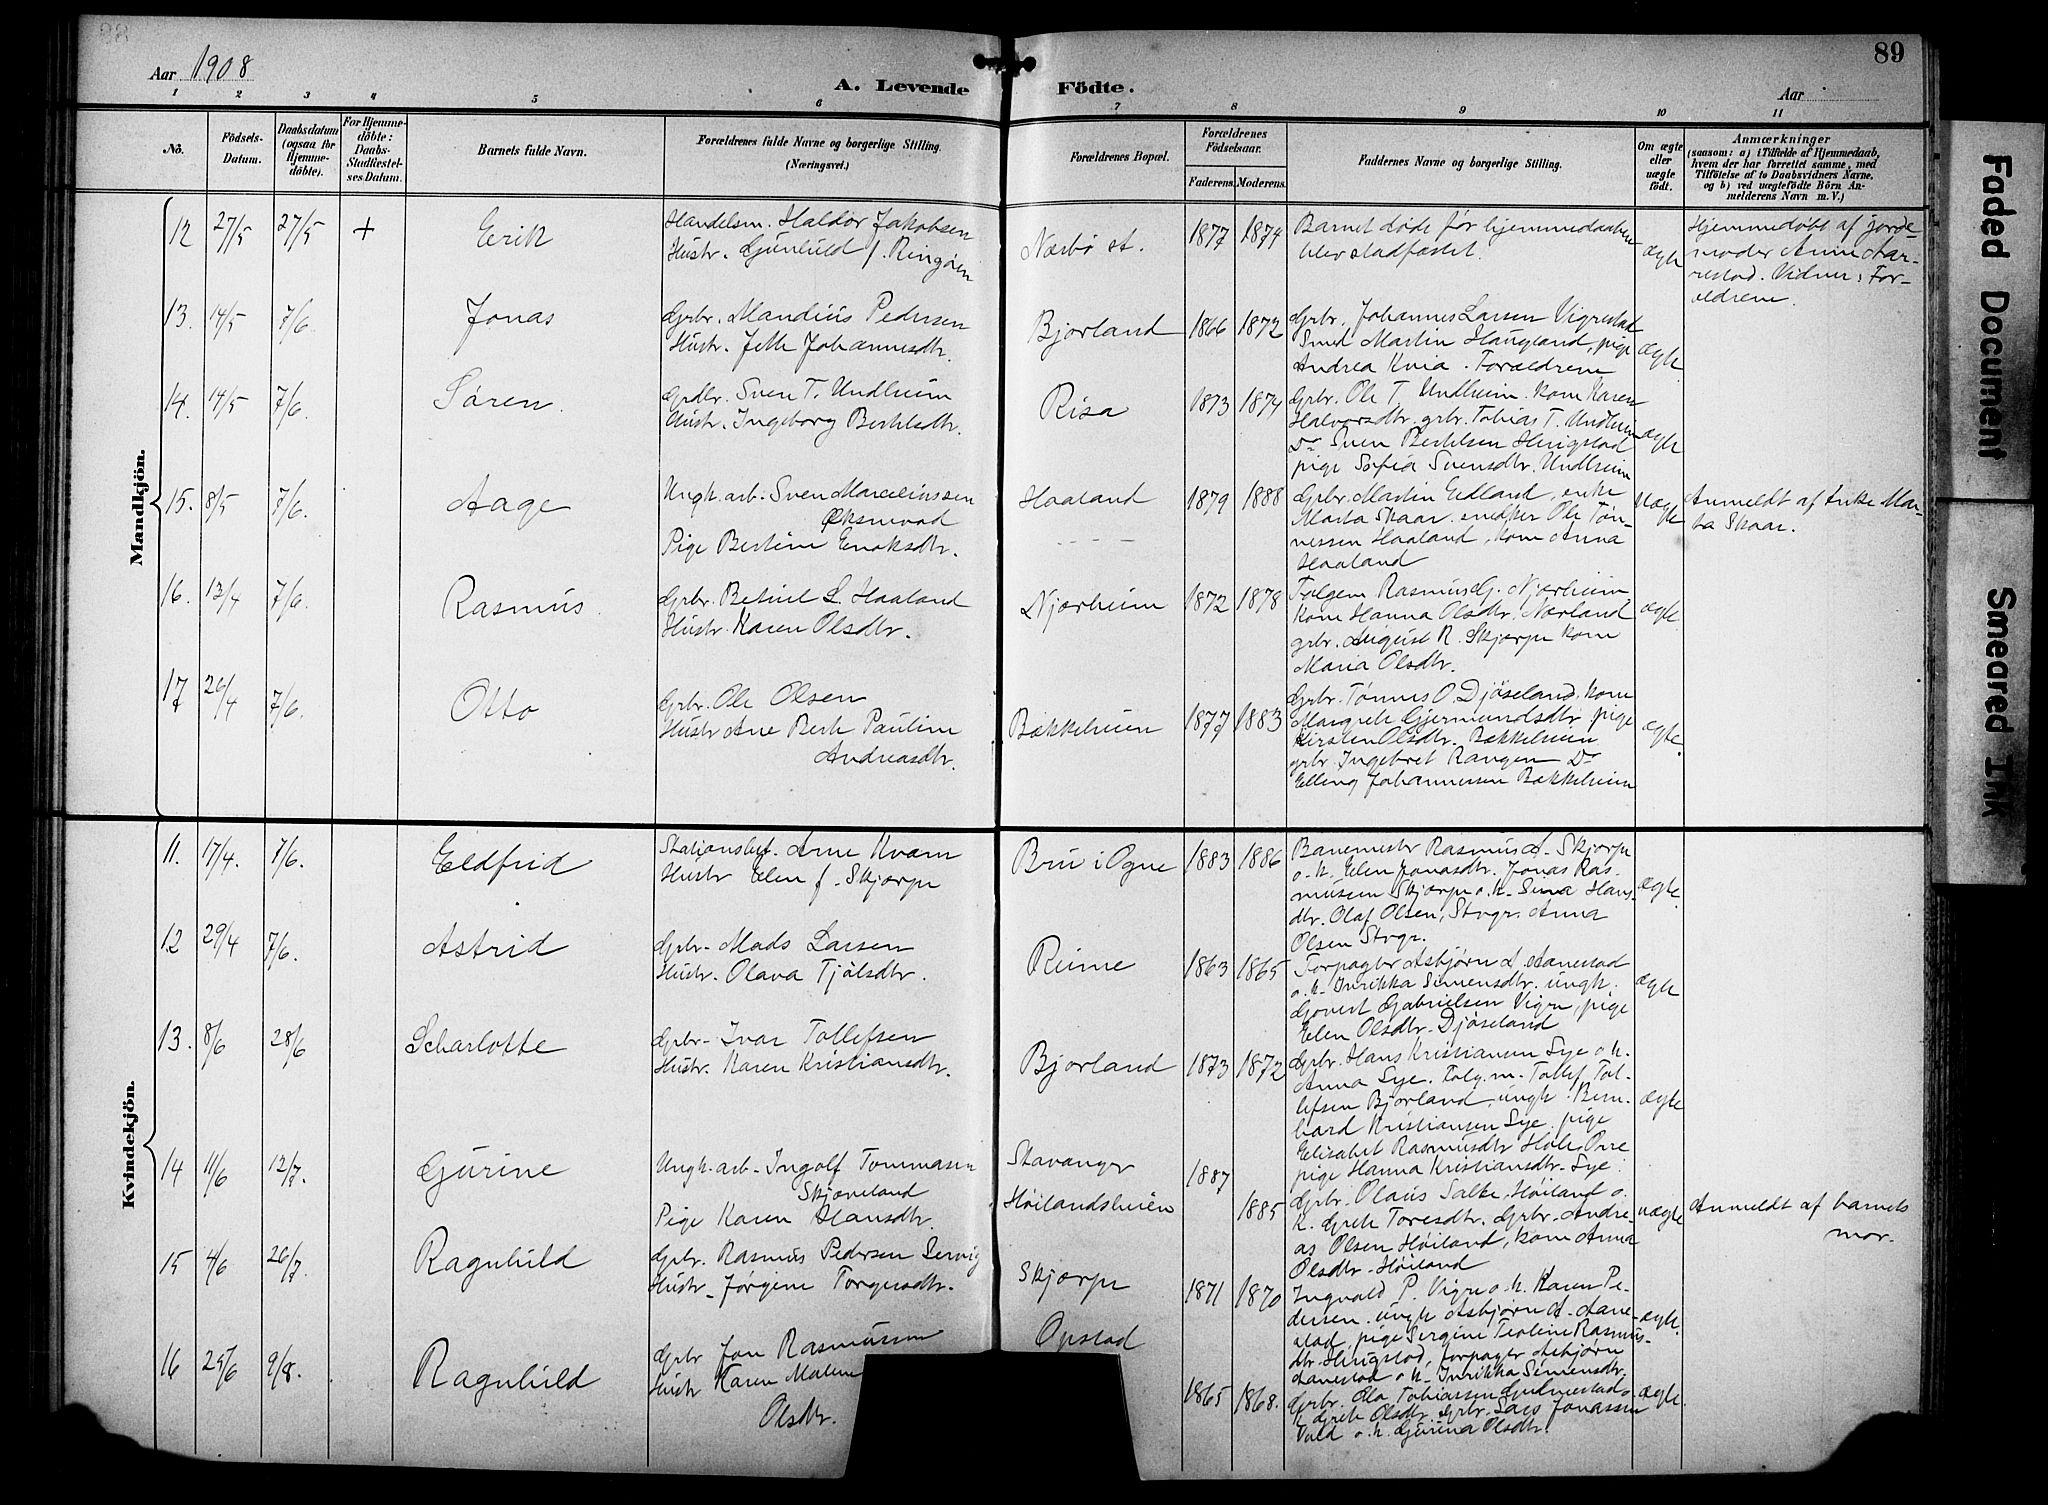 89
Aar 1908
A. Levende Födte.
Aar
1 2 3 4 5 6 7 8 9 10 11
No.
Födsels-Datum.
Daabsdatum (ogsaa for Hjemme-döbte).
For Hjemme-döbte: Daabs-Stadfæstel-ses Datum.
Barnets fulde Navn.
Forældrenes fulde Navne og borgerlige Stilling. (Næringsvei.)
Forældrenes Bopæl.
Forældrenes Födselsaar.
Faderens. Moderens.
Faddernes Navne og borgerlige Stilling.
Om ægte eller uægte födt.
Anmærkninger
(saasom: a) i Tilfælde af Hjemmedaab, hvem der har forrettet samme, med Tilföielse af to Daabsvidners Navne, og b) ved uægtefödte Börn An-melderens Navn m. V.)
Mandkjön.
12 27/5 27/5 + Erik
Handelsm. Haldor Jakobsen
Hustr. Gunhild f. Ringøen
Nærbö st. 1877 1874
Barnet døde før hjemmedaaben
blev stadfæstet.
ægte
Hjemmedøbt af jorde-
moder Anne Aar-
restad. Vidner: For-
ældrene.
13. 14/5 7/6. Jonas
Grbr. Mandius Pedersen
Hustr. Jette Johannesdtr.
Bjorland 1866 1872
Grbr. Johannes Larsen Vigrestad
Smed Martin Haugland, pige
Andrea Kvia. Forældrene
ægte
14. 14/5 7/6. Søren.
Grdbr. Sven T. Undheim
Hustr. Ingeborg Berteledtr.
Risa 1873 1874
Grbr. Ole T. Undheim. kone Karen
Halvorsdtr. grbr. Tobias T. Undheim
Do Sven Bertelsen Hingstad
pige Sofia Svensdtr. Undheim
ægte
15. 8/5 7/6. Aage
Ungk. arb. Sven Marceliussen
Øksnevad
Pige Bertine Enoksdtr.
Haaland 1879 1888
Grbr. Martin Eidland, enke
Marta Skaar. endker Ole Tøn-
nessen Haaland, kone Anna
Haaland
Uægte
Anmeldt af Enke Mar-
ta Skaar.
16. 13/4 7/6. Rasmus
Grbr. Betuel L. Haaland
Hustr. Karen Olsdtr.
Njærheim 1872 1878
Følgem. Rasmus G. Njærheim
kone Hanna Olsdtr. Nærland
grbr. August R. Skjærpe kone
Maria Olsdtr.
ægte
17 26/4 7/6. Otto
Grbr. Ole Olsen
Hustr Ane Bert Pauline
Andreasdtr.
Bækkeheien 1877 1883
Grbr. Tønnes O. Djöseland, kone
Margrete Gjermundsdtr. pige
Kirsten Olsdtr. Bækkeheien
grbr. Ingebret Rangen Do
Elling Johannessen Bækkeheien
ægte.
Kvindekjön.
11. 17/4. 7/6. Eldfrid
Stationsbet. Arne Kvam
Hustr Elen f. Skjærpe
Bru i Ogne 1883 1886
Banemester Rasmus A. Skjærpe
o. h. Elen Jonasdtr. Jonas Ras-
mussen Skjærpe o. h. Sina Hans-
dtr. Olaf Olsen, Stvgr. Anna
Olsen Stvgr.
ægte.
12 29/4 7/6. Astrid
Grbr. Mads Larsen
Hustr. Olava Tjølsdtr.
Rime 1863 1865
Forpagter Asbjørn A. Aanestad
o. h. Inrikka Simensdtr. ungk.
Govert Gabrielsen Vigre, pige
Elen Olsdtr. Djöseland
ægte
13. 8/6 28/6 Scharlotte
Grbr. Ivar Tollefsen
Hustr. Karen Kristiansdtr.
Bjorland 1873 1872
Grbr. Hans Kristiansen Sye o. h.
Anna Sye. Følg.m. Tollef Tol-
lefsen Bjorland, ungk. Bern-
hard Kristiansen Sye. pige
Elisabet Rasmusdtr. Hole, Orre
pige Hanna Kristiansdtr. Sye.
ægte
14 11/6 12/7. Gurine
Ungk. arb. Ingolf Tommasen
Skjæveland
Pige Karen Hansdtr.
Stavanger 1887
Høilandsheien 1885
Grbr. Olaus Salte, Høiland o.
h. Grete Toresdtr. Grbr. Andre-
as Olsen Høiland, kone Anna
Olsdtr. Høiland
uægte
Anmeldt af barnets
mor.
15 4/6 26/7. Ragnhild
Grbr. Rasmus Pedersen Servig
Hustr. Jørgine Torgersdtr.
Skjærpe 1871 1870
Ingvald P. Vigre o. h. Karen Pe-
dersen. ungk Asbjørn A. Aane-
stad, pige Sergine Teoline Rasmus-
dtr. Hingstad, forpagter Asbjørn
Aanestad o. h. Inrikka Simensdtr.
ægte.
16 25/6 9/8. Ragnhild
Grbr Jon Rasmussen
Hustr Karen Malene
Olsdtr.
Opstad 1865 1868.
Grbr. Ola Tobiassen Gudmestad o.
h. Grete Olsdtr. Grbr. Lars Jonassen
Tuld o. h. Gurina Olsdtr.
ægte.
Faded Document
Smeared Ink